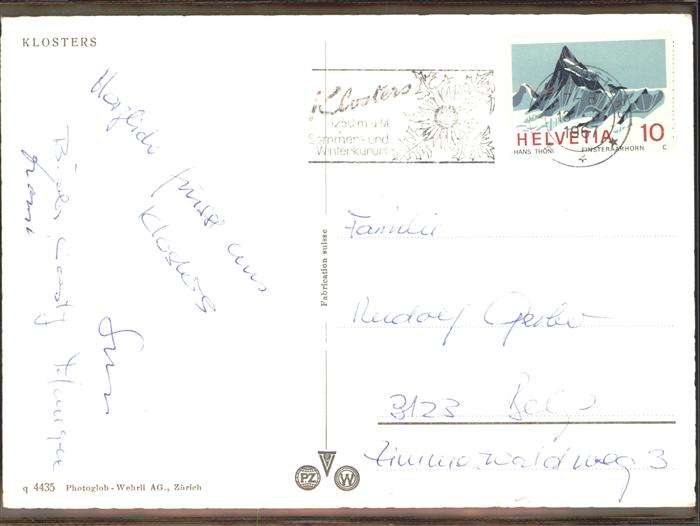 KLOSTERS
Herzliche
Grüsse aus
Klosters
Klosters
1250 m ü. M.
Sommer- und
Winterkurort
HELVETIA 10
HANS THÖNI FINSTERAARHORN C
Fabrication suisse
Familie
Rudolf Gerber
3123 Belp
Zimmerwaldweg 3
PZ W
q 4435 Photoglob-Wehrli AG., Zürich